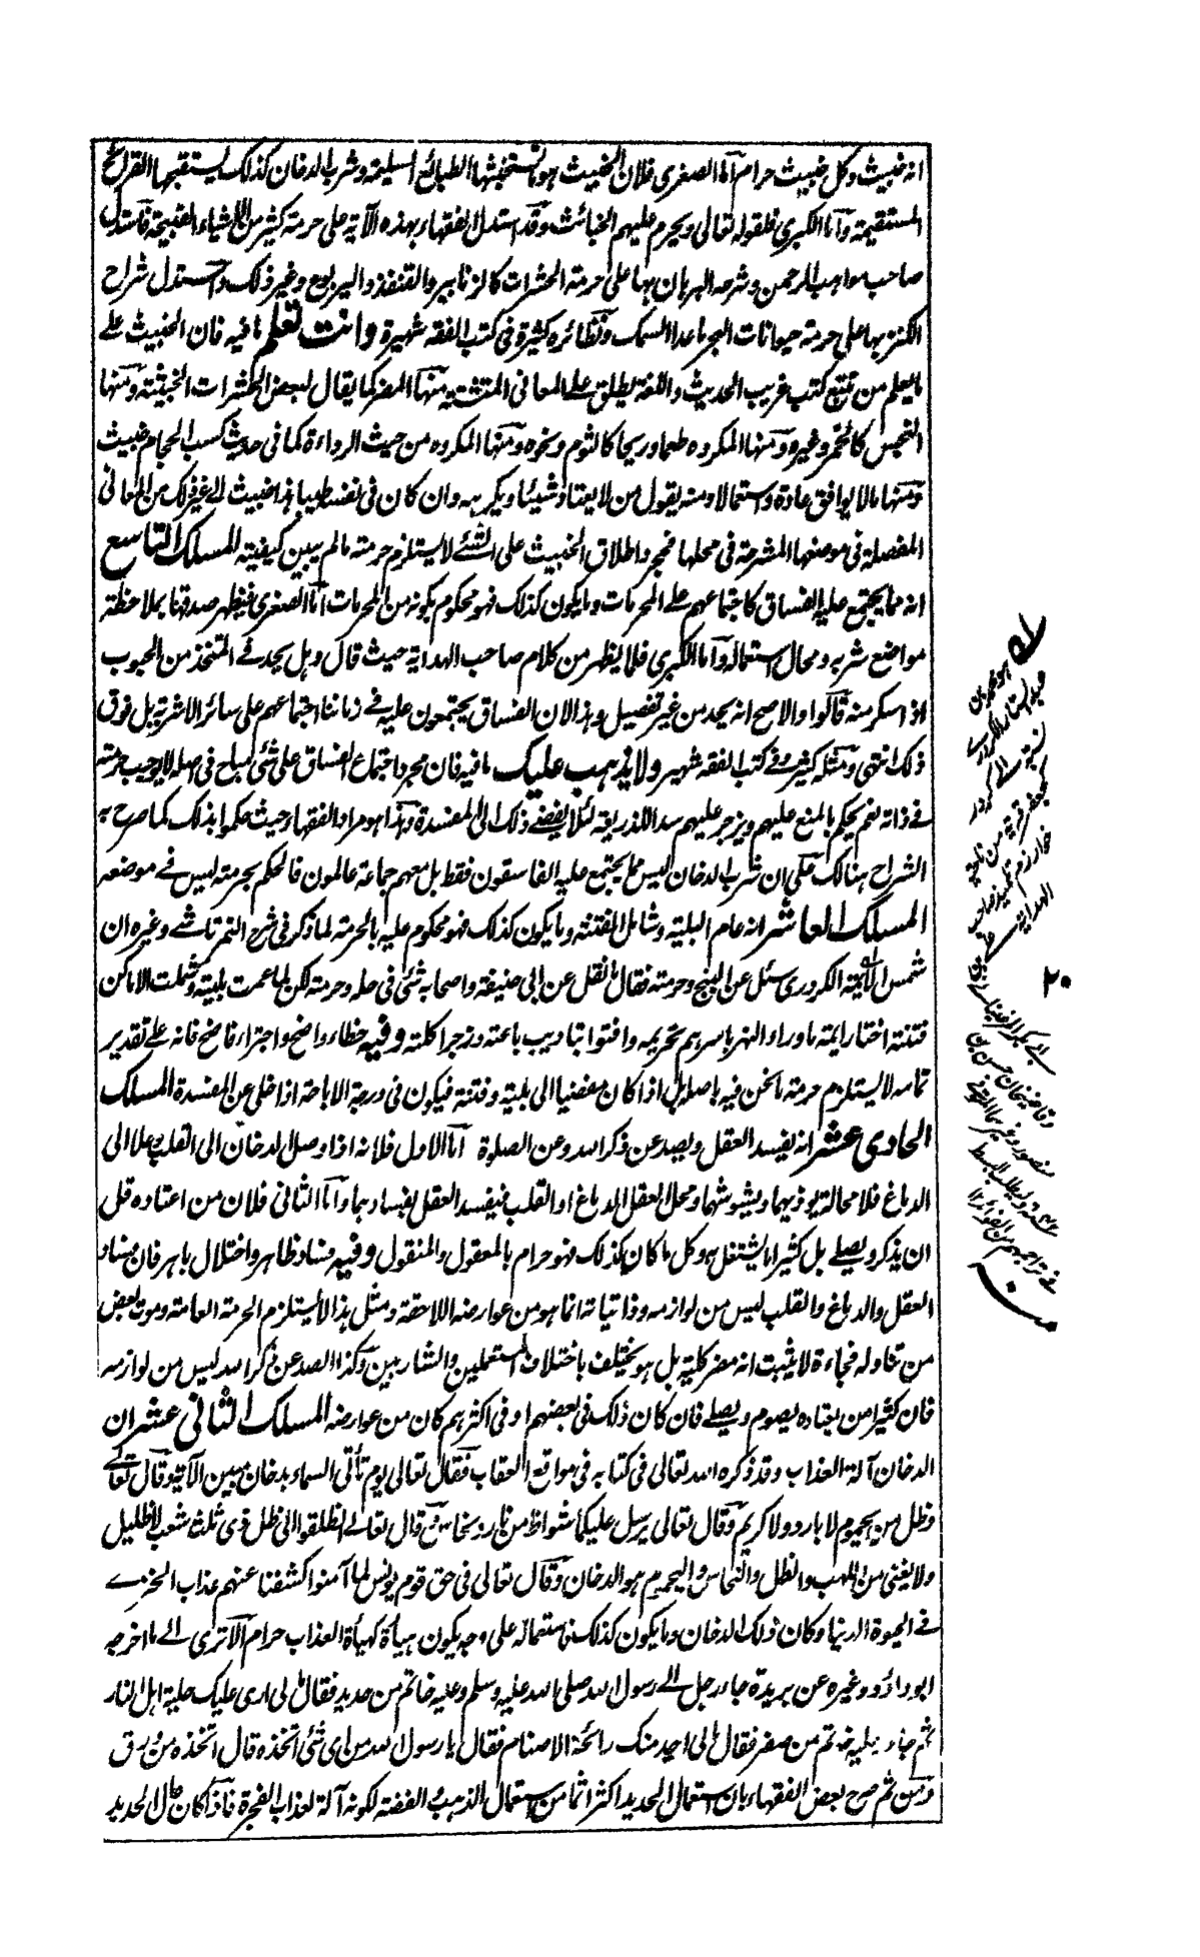 انه خبيث وكل خبيث حرام آما الصغرى فلان الخبيث هو ما تستخبثها الطبائع السليمة وشرب الدخان كذلك يستقبحها القرائح
المستقيمة وآما الكبرى فلقوله تعالى ويحرم عليهم الخبائث وقد استدل الفقهاء بهذه الآية على حرمة كثير من الاشياء القبيحة فاستدل
صاحب مواهب الرحمن وشرحه البرهان بها على حرمة الحشرات كالزنابير والقنفذ واليربوع وغير ذلك واستدل شراح
الكنز بها على حرمة حيوانات البحر ما عدا السمك ونظائره كثيرة فى كتب الفقه شهيرة وانت تعلم ما فيه فان الخبيث على
ما يعلم من تتبع كتب غريب الحديث واللغة يطلق على المعانى المتشتتة منها المضر كما يقال لبعض الحشرات الخبيثة ومنها
النجس كالخمر وغيره ومنها المكروه طعما وريحا كالثوم ونحوه ومنها المكروه من حيث الرداءة كما فى حديث كسب الحجام خبيث
ومنها ما لا يوافق عادة واستعمالا ومنه يقول من لا يعتاد شيئا ويكرهه وان كان فى نفسه طيبا هذا خبيث الى غير ذلك من المعانى
المفصلة فى موضعها المشرحة فى محلها فمجرد اطلاق الخبيث على الشئ لا يستلزم حرمته ما لم يبين كيفيته المسلك التاسع
انه مما يجتمع عليه الفساق كاجتماعهم على المحرمات وما يكون كذلك فهو محكوم بكونه من المحرمات آما الصغرى فيظهر صدقها بملاحظة
مواضع شربه ومحال استعماله وآما الكبرى فلما يظهر من كلام صاحب الهداية حيث قال وهل يحد فى المتخذ من الحبوب
اذا سكر منه قالوا والاصح انه يحد من غير تفصيل وهذا لان الفساق يجتمعون عليه فى زماننا اجتماعهم على سائر الاشربة بل فوق
ذلك انتهى ومثله كثير فى كتب الفقه شهير ولا يذهب عليك ما فيه فان مجرد اجتماع الفساق على شئ مباح فى اصله لا يوجب حرمته
فى ذاته نعم يحكم بالمنع عليهم ويزجر عليهم سدا للذريعة لئلا يفضى ذلك الى المفسدة وهذا هو مراد الفقهاء حيث حكموا بذلك كما صرح به
الشراح هنالك على ان شرب الدخان ليس مما يجتمع عليه الفاسقون فقط بل معهم جماعة عالمون فالحكم بحرمته ليس فى موضعه
المسلك العاشر انه عام البلية وشامل الفتنة وما يكون كذلك فهو محكوم عليه بالحرمة لما ذكر فى شرح التمرتاشى وغيره ان
شمس الائمة الكردرى سئل عن البنج وحرمته فقال ما نقل عن ابى حنيفة واصحابه شئ فى حله وحرمته لكن لما عمت بليته وشملت الاماكن
فتنته اختار ايمة ماوراء النهر باسرهم تحريمه وافتوا بتاديب باعته وزجر اكلته وفيه خطاء واضح واجتراء فاضح فانه على تقدير
تمامه لا يستلزم حرمة ما نحن فيه باصله بل اذا كان مفضيا الى بلية وفتنة فيكون فى درجة الاباحة اذا خلى عن المفسدة المسلك
الحادى عشر انه يفسد العقل ويصد عن ذكر الله وعن الصلوة آما الاول فلانه اذا وصل الدخان الى القلب وعلا الى
الدماغ فلا محالة يوذيهما ويشوشهما ومحل العقل الدماغ او القلب فيفسد العقل بفسادهما وآما الثانى فلان من اعتاده قل
ان يذكر ويصلى بل كثيرا ما يشتغل به وكل ما كان كذلك فهو حرام بالمعقول والمنقول وفيه فساد ظاهر واختلال باهر فان فساد
العقل والدماغ والقلب ليس من لوازمه وذاتياته انما هو من عوارضه اللاحقة ومثل هذا لا يستلزم الحرمة العامة وموت بعض
من تناوله فجاءة لا يثبت انه مضر كلية بل هو يختلف باختلاف المستعملين والشاربين وكذا الصد عن ذكر الله ليس من لوازمه
فان كثيرا من يعتاده يصوم ويصلى فان كان ذلك فى بعضهم او فى اكثرهم كان من عوارضه المسلك الثانى عشر ان
الدخان آلة العذاب وقد ذكره الله تعالى فى كتابه فى مواقع العقاب فقال تعالى يوم تأتى السماء بدخان مبين الآية وقال تعالى
وظل من يحموم لا بارد ولا كريم وقال تعالى يرسل عليكما شواظ من نار ونحاس وقال تعالى انطلقوا الى ظل ذى ثلث شعب لا ظليل
ولا يغنى من اللهب والظل والنحاس واليحموم هو الدخان وقال تعالى فى حق قوم يونس لما آمنوا كشفنا عنهم عذاب الخزى
فى الحيوة الدنيا وكان ذلك الدخان وما يكون كذلك فاستعماله على وجه يكون هيأة كهيأة العذاب حرام الا ترى الى ما اخرجه
ابو داؤد وغيره عن بريدة جاء رجل الى رسول الله صلى الله عليه وسلم وعليه خاتم من حديد فقال مالى ارى عليك حلية اهل النار
ثم جاء وعليه خاتم من صفر فقال مالى اجد منك رائحة الاصنام فقال يا رسول الله من اى شئ اتخذه قال اتخذه من ورق
ومن ثم صرح بعض الفقهاء بان استعمال الحديد اكثر اثما من استعمال الذهب والفضة لكونه آلة لعذاب الفجرة فاذا كان حال الحديد
هو محمد بن
عبد الستار الكردرى
نسبة الى كردر
كجعفر قرية من ناحية
خوارزم تلميذ صاحب
الهداية
٢٠
وقاضيخان حسن بن
منصور وغيرهما